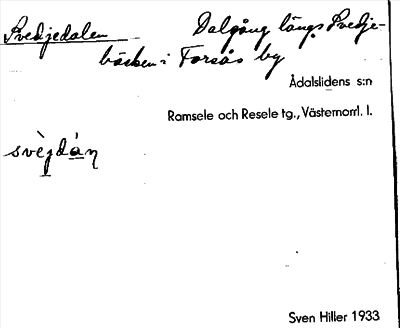 Svedjedalen Dalgång längs Svedje-
bäcken i Forsås by
Ådalslidens s:n
Ramsele och Resele tg., Västernorrl. l.
svèjdáṇ
Sven Hiller 1933